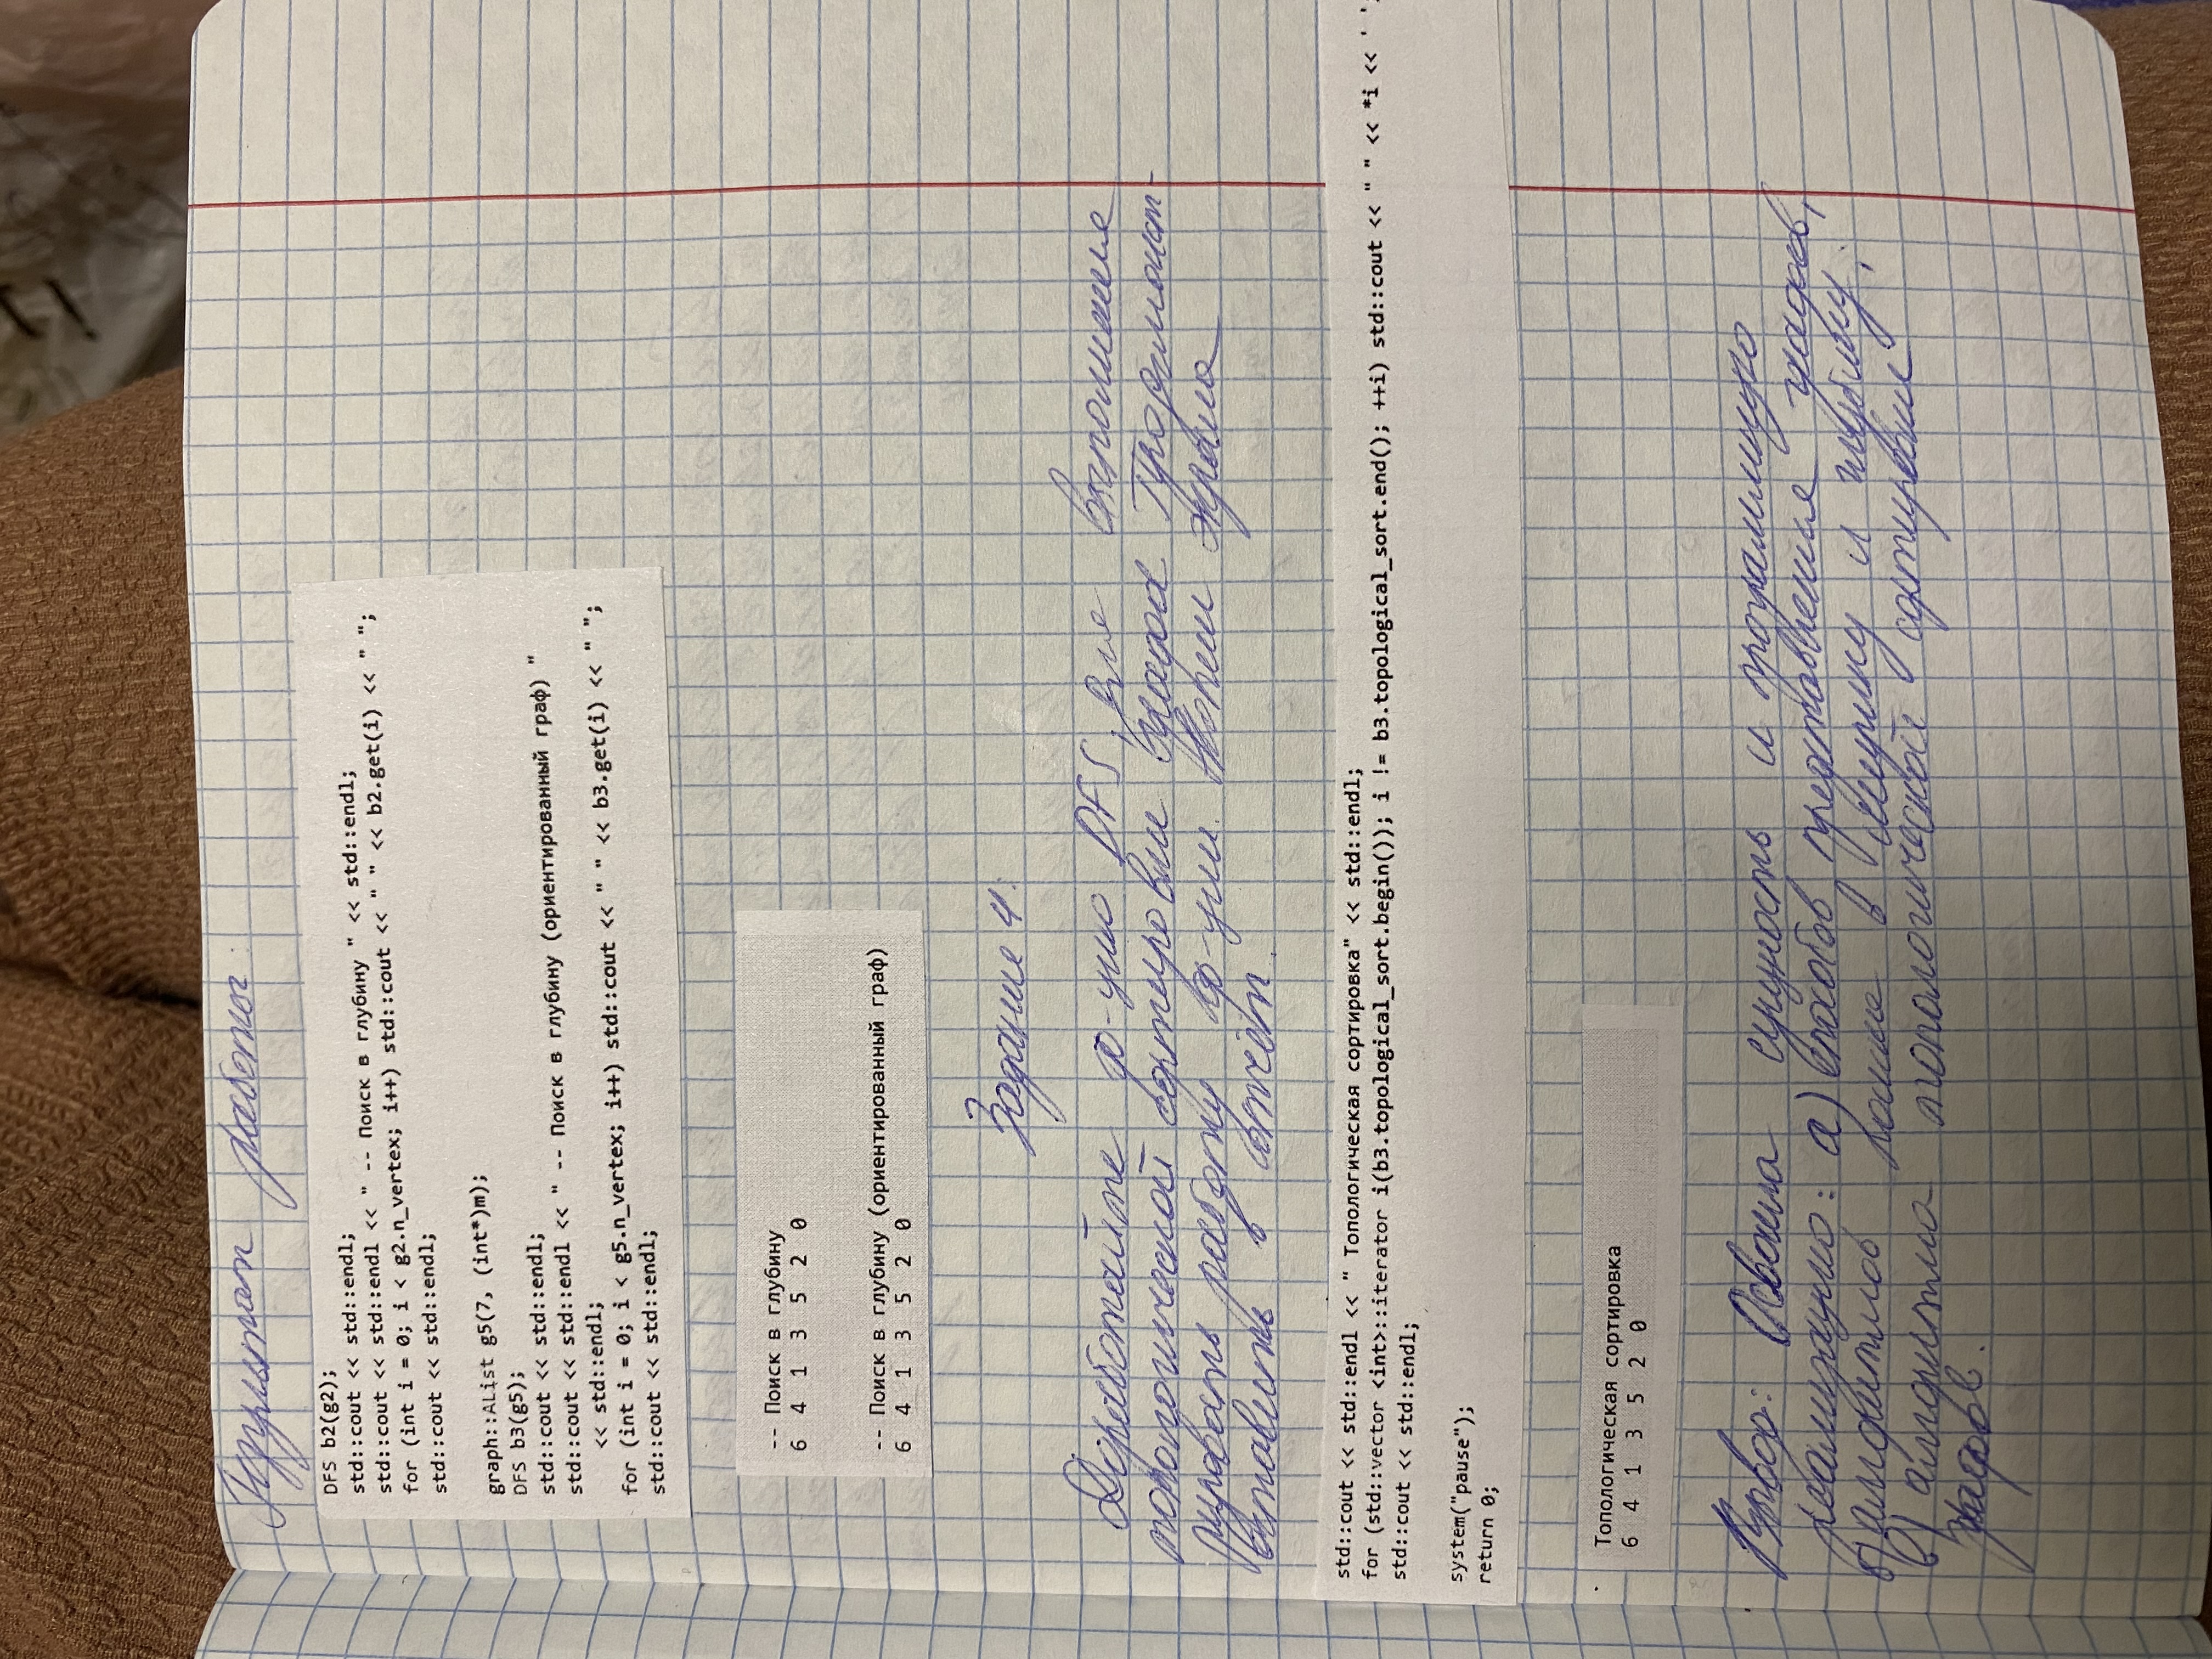 Результат работы
DFS b2(g2);
std::cout << std::endl;
std::cout << std::endl << " -- Поиск в глубину " << std::endl;
for (int i = 0; i < g2.n_vertex; i++) std::cout << " " << b2.get(i) << " ";
std::cout << std::endl;
graph::AList g5(7, (int*)m);
DFS b3(g5);
std::cout << std::endl;
std::cout << std::endl << " -- Поиск в глубину (ориентированный граф) "
<< std::endl;
for (int i = 0; i < g5.n_vertex; i++) std::cout << " " << b3.get(i) << " ";
std::cout << std::endl;
-- Поиск в глубину
6 4 1 3 5 2 0
-- Поиск в глубину (ориентированный граф)
6 4 1 3 5 2 0
Задание 4:
Доработайте ф-цию DFS, для выполнения
топологической сортировки графов Продемонст-
рировать работу ф-ции. Копии экрана
вставить в отчёт.
std::cout << std::endl << " Топологическая сортировка" << std::endl;
for (std::vector <int>::iterator i(b3.topological_sort.begin()); i != b3.topological_sort.end(); ++i) std::cout << " " << *i << ' ';
std::cout << std::endl;
system("pause");
return 0;
Топологическая сортировка
6 4 1 3 5 2 0
Вывод: Освоила сущность и программную
реализацию: а) способов представления графов,
б) алгоритмов поиска в ширину и глубину;
в) алгоритма топологической сортировки
графов.